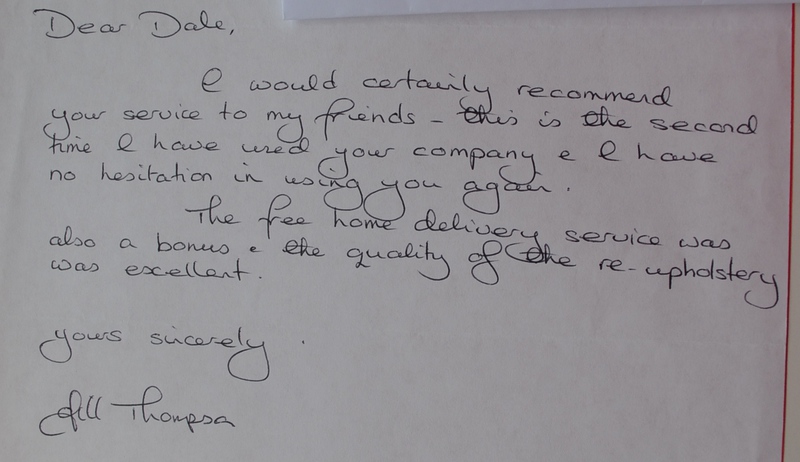 Dear Dale,
I would certainly recommend
your service to my friends - this is the second
time I have used your company & I have
no hesitation in using you again.
The free home delivery service was
also a bonus & the quality of the re-upholstery
was excellent.
yours sincerely.
Jill Thompson